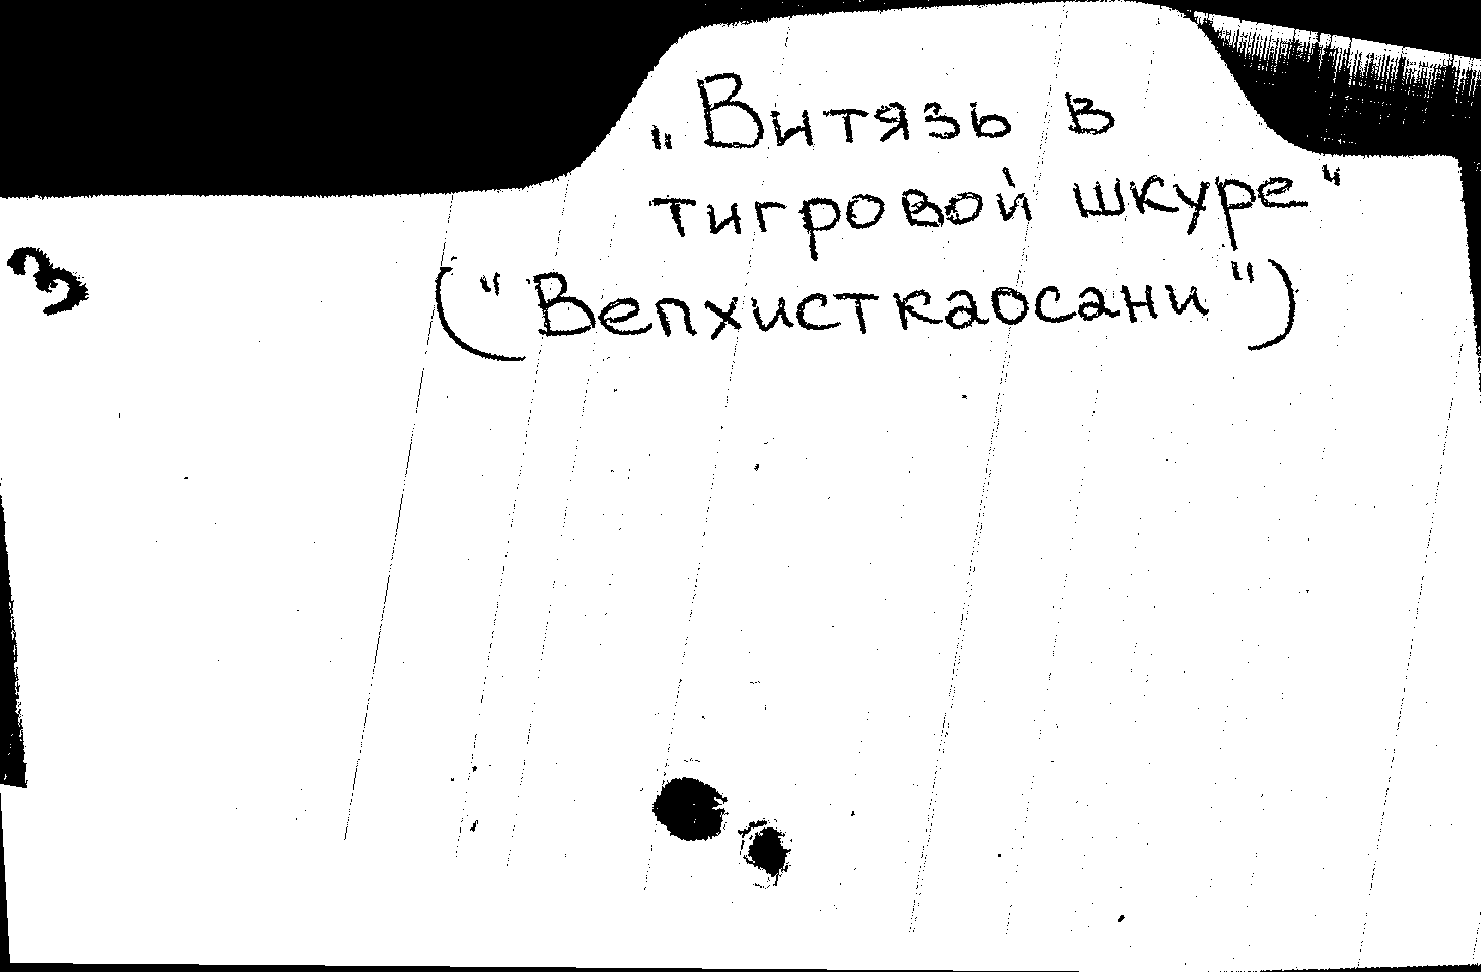 „Витязь в
тигровой шкуре"
("Вепхисткаосани")
З